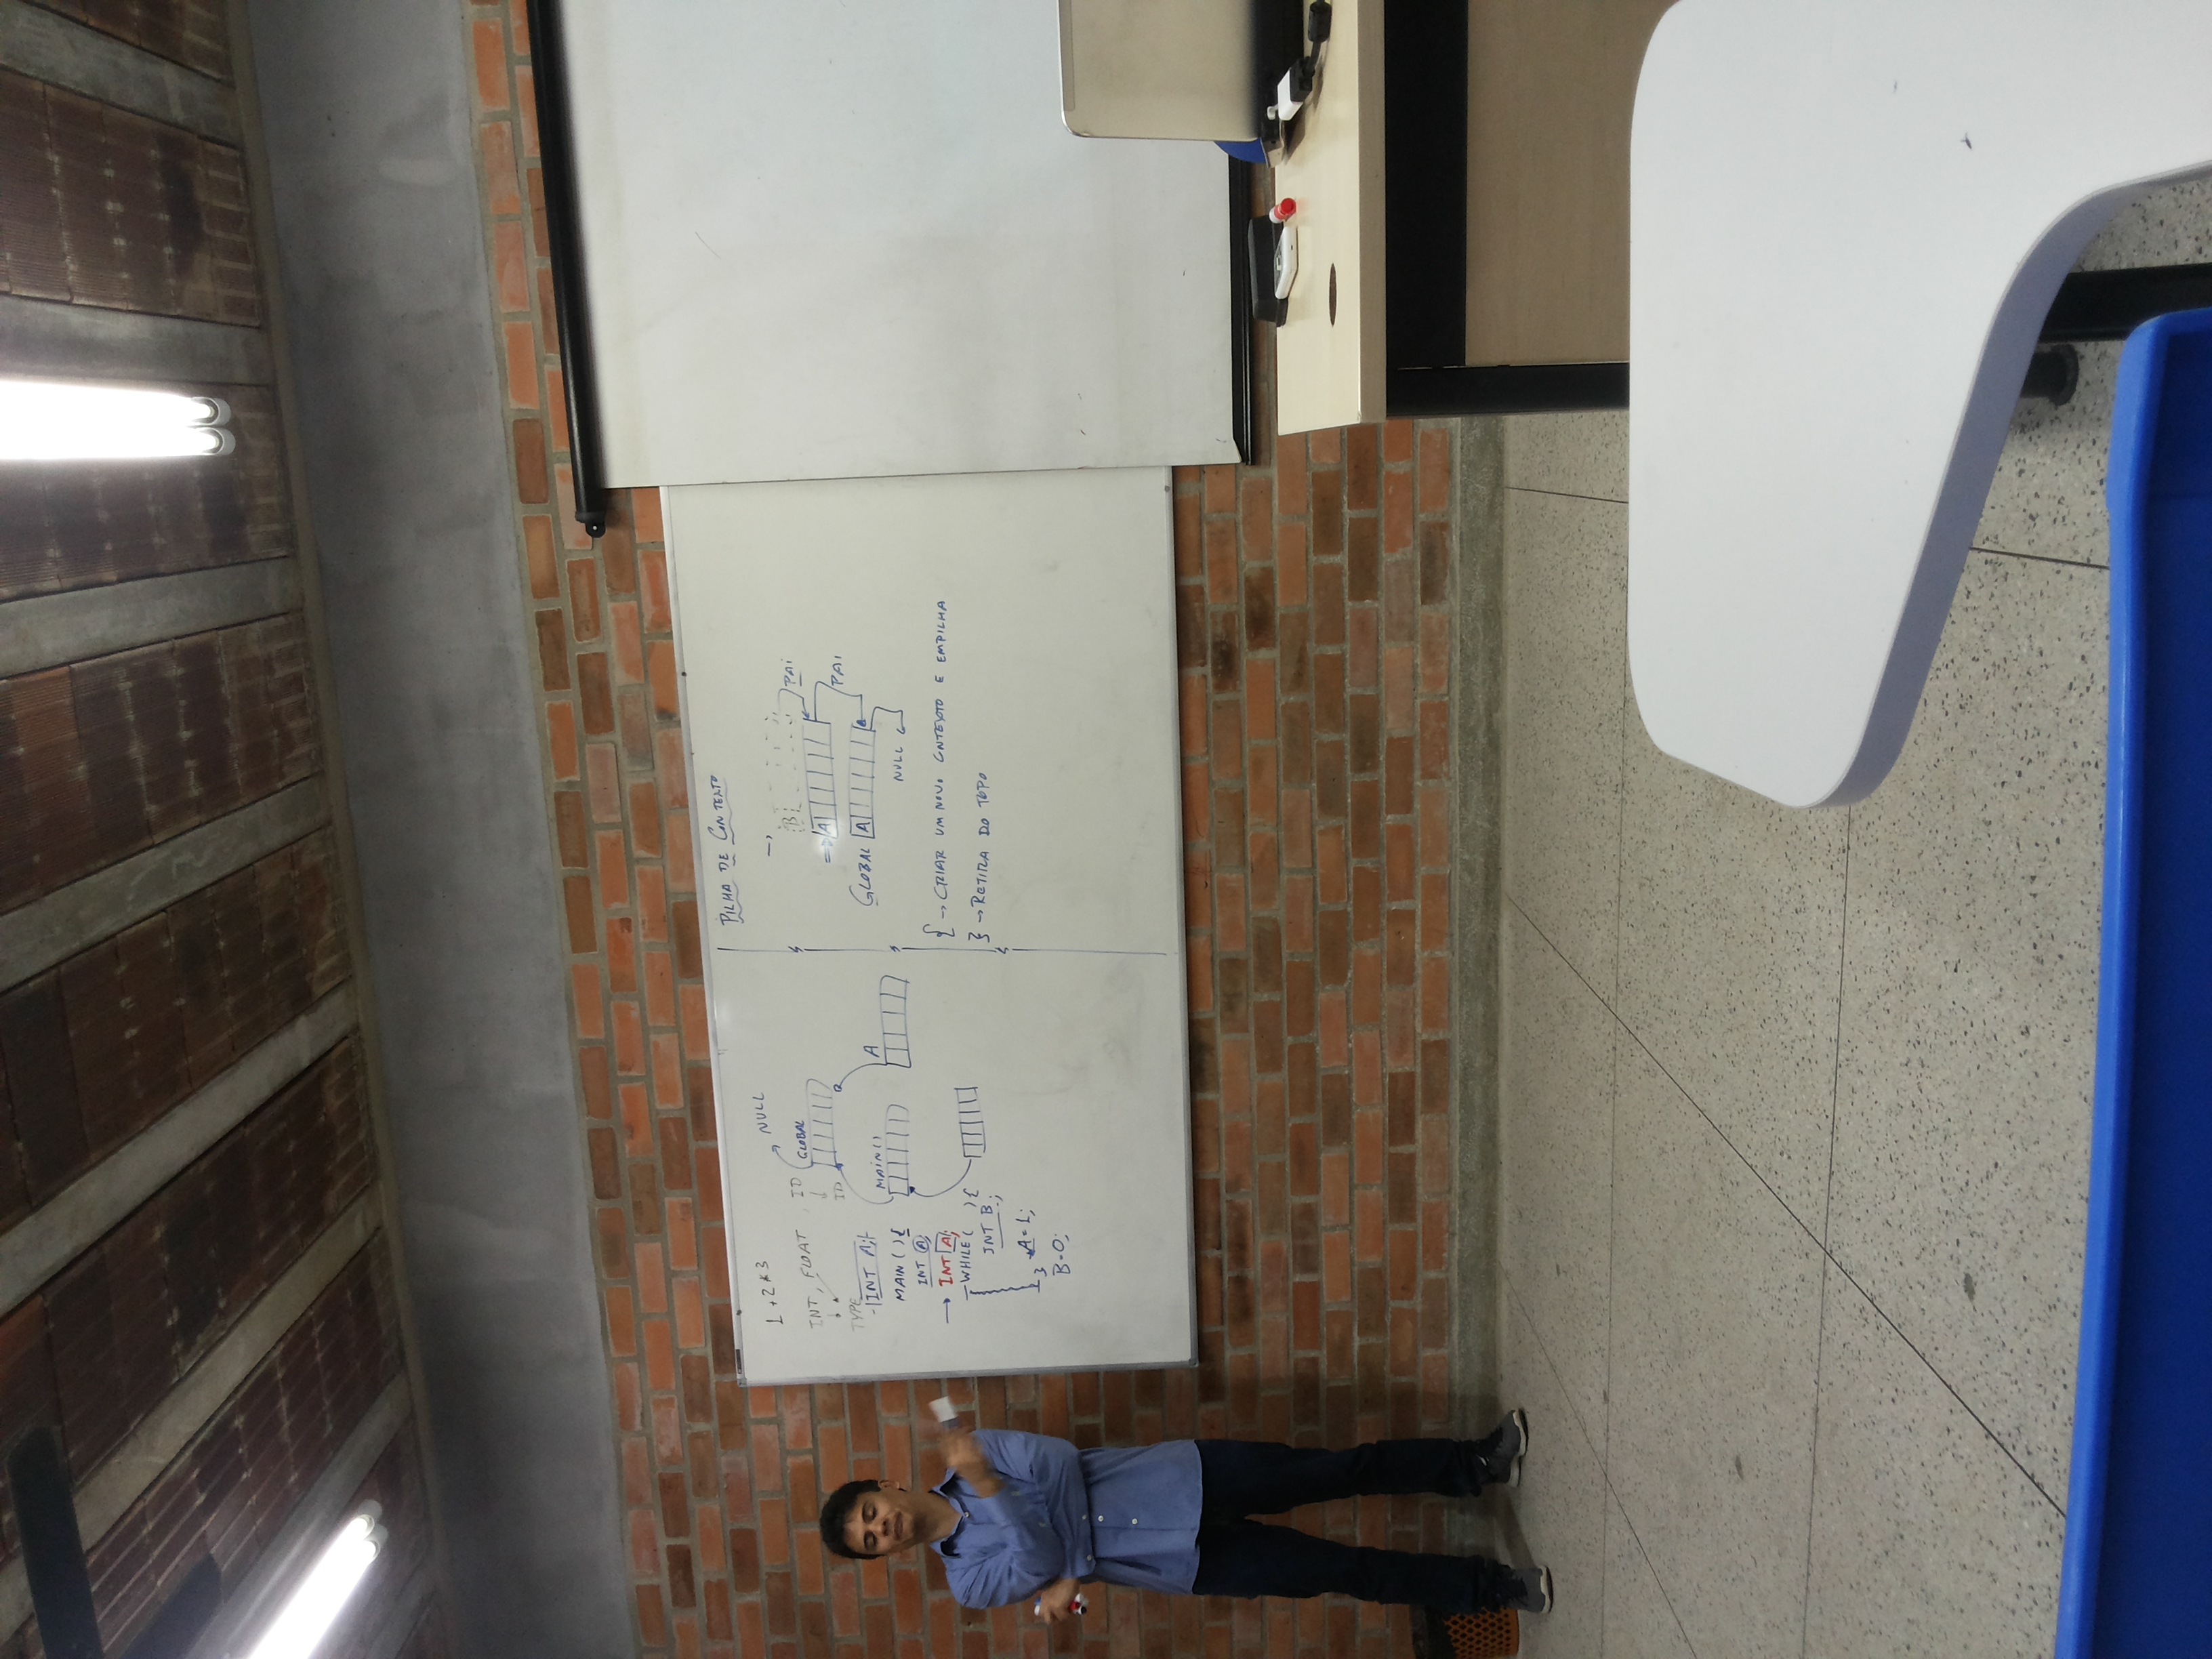 1 + 2 * 3
INT, FLOAT
TYPE
INT A;
MAIN ( ) {
INT A;
→ INT A;
WHILE ( ) {
INT B;
A = 1;
}
B = 0;
NULL
ID
GLOBAL
ID
MAIN()
A
PILHA DE CONTEXTO
→
B
PAI
A
PAI
GLOBAL A
NULL
{ → CRIAR UM NOVO CONTEXTO E EMPILHA
} → RETIRA DO TOPO